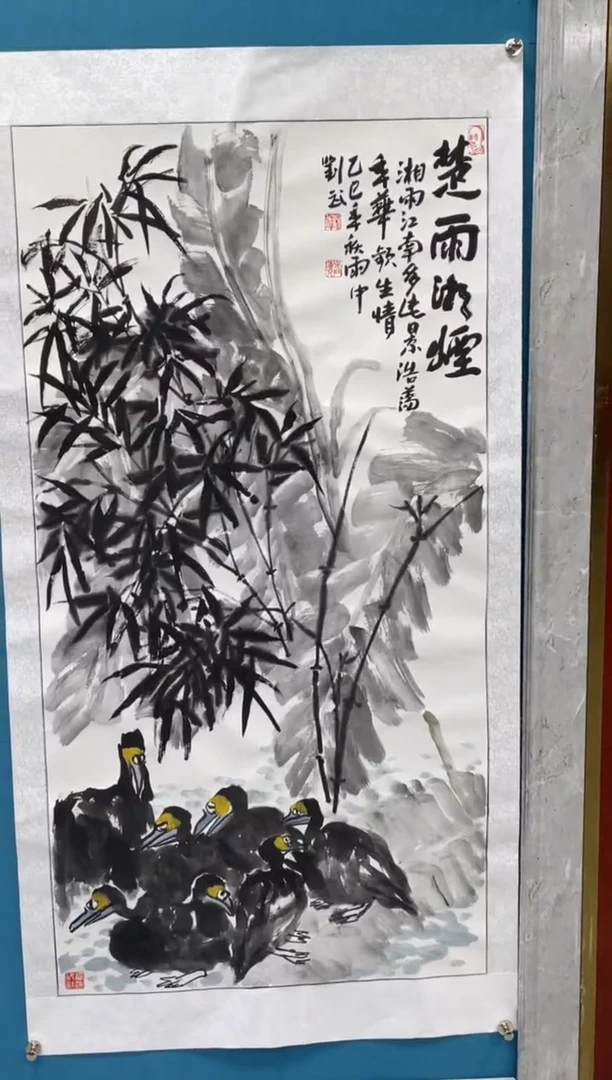 楚雨湘煙
湘雨江南多此景浩蕩
年華領生情
乙巳年秋雨中
劉武